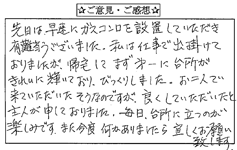 ☆ご意見・ご感想☆
先日は早急にガスコンロを設置していただき
有難うございました。私は仕事で出掛けて
おりましたが、帰宅してまず一番に台所が
きれいに輝いており、びっくりしました。お二人で
来ていただいたそうなのですが、良くしていただいたと
主人が申しておりました。毎日、台所に立つのが
楽しみです。また今度何かありましたら宜しくお願い
致します。